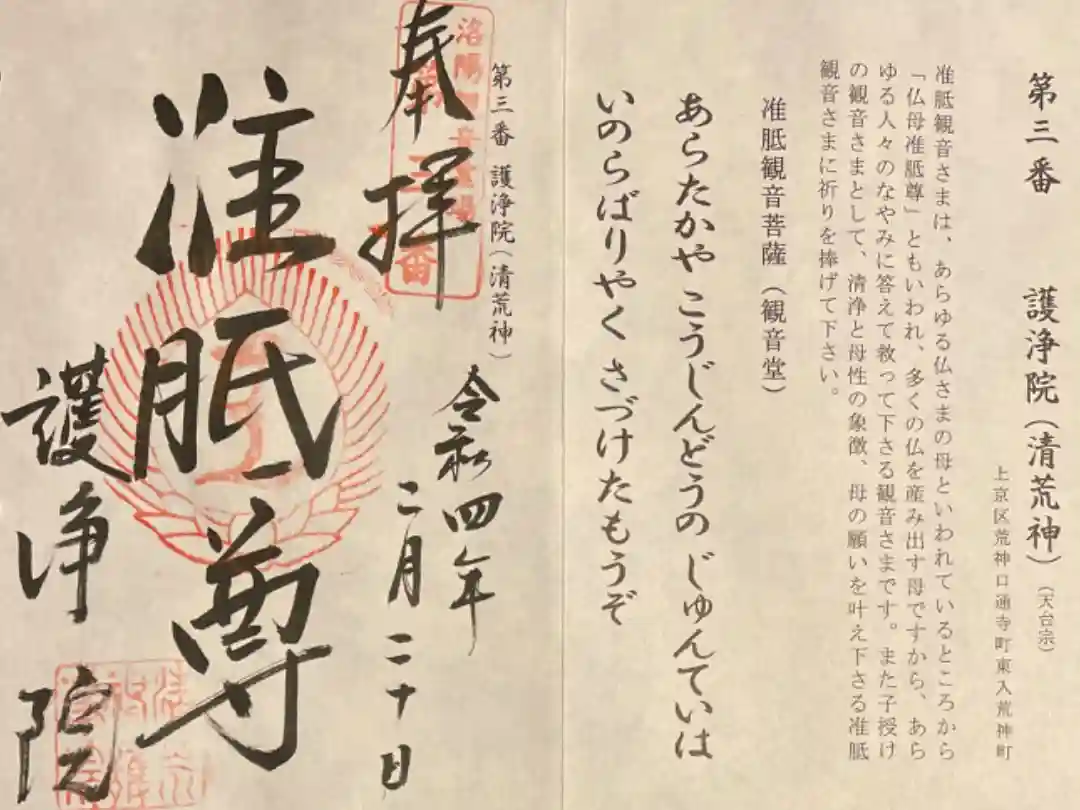 第三番 護浄院(清荒神)(天台宗)
上京区荒神口通寺町東入荒神町
准胝観音さまは、あらゆる仏さまの母といわれているところから
「仏母准胝尊」ともいわれ、多くの仏を産み出す母ですから、あら
ゆる人々のなやみに答えて救って下さる観音さまです。また子授け
の観音さまとして、清浄と母性の象徴、母の願いを叶え下さる准胝
観音さまに祈りを捧げて下さい。
准胝観音菩薩(観音堂)
あらたかや こうじんどうの じゅんていは
いのらばりやく さづけたもうぞ
第三番 護浄院(清荒神)
洛陽観音霊場
第三番
奉拝
令和四年
二月二十日
准胝尊
護浄院